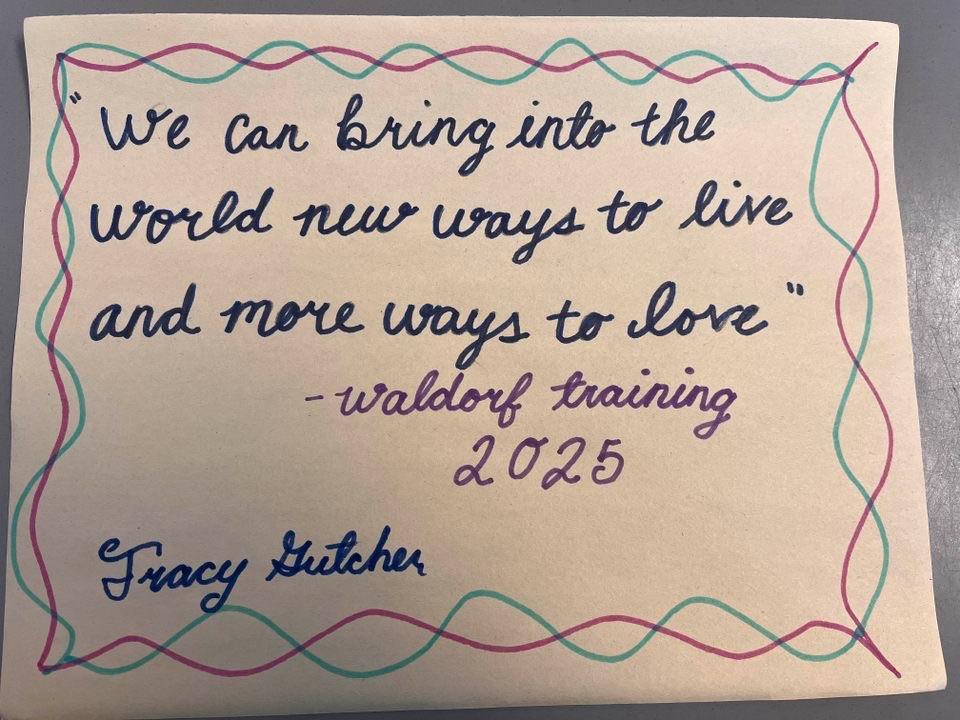 "We can bring into the
world new ways to live
and more ways to love"
- Waldorf training
2025
Tracy Gutcher